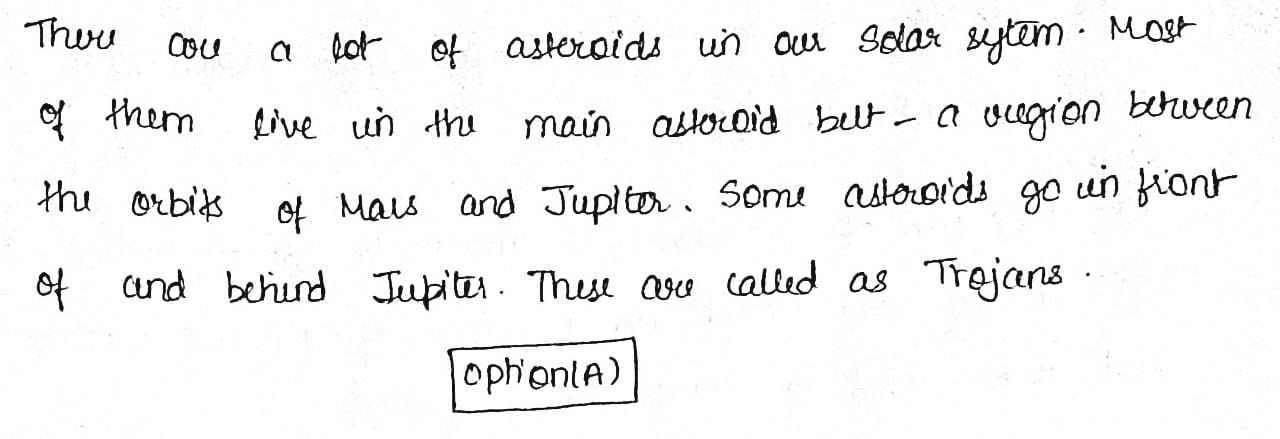 There are a lot of asteroids in our Solar sytem. Most
of them live in the main asteroid belt - a region between
the orbits of Mars and Jupiter. Some asteroids go in front
of and behind Jupiter. These are called as Trojans.
Option(A)